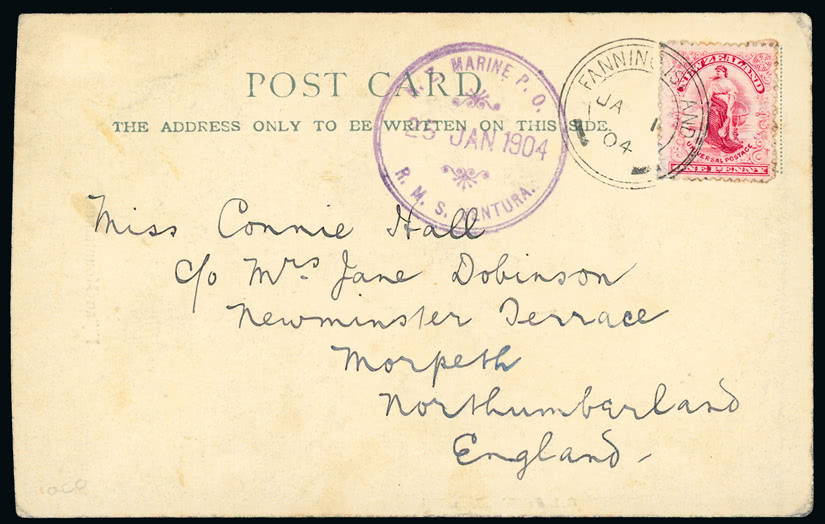 POST CARD
THE ADDRESS ONLY TO BE WRITTEN ON THIS SIDE
MARINE P. O.
25 JAN 1904
R. M. S. VENTURA.
FANNING ISLAND
JA 1
04
NEW ZEALAND
UNIVERSAL POSTAGE
ONE PENNY
Miss Connie Hall
c/o Mrs Jane Dobinson
Newminster Terrace
Morpeth
Northumberland
England -